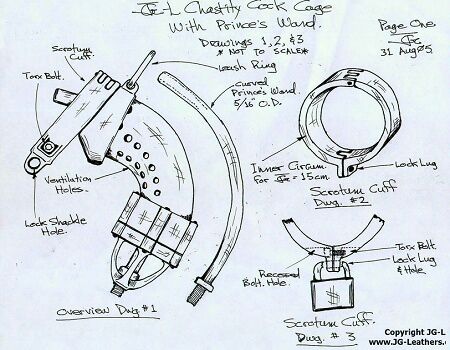 JG-L Chastity Cock Cage
With Prince's Wand.
Drawings 1, 2, & 3
* NOT TO SCALE *
Page One.
JG
31 Aug 05
Scrotum
Cuff.
Torx Bolt.
Leash Ring
Curved
Prince's Wand.
5/16" O.D.
Ventilation
Holes.
Lock Shackle
Hole.
Overview Dwg # 1
Inner Circum
For JG = 15cm.
Lock Lug
Scrotum Cuff
Dwg. # 2
Recessed
Bolt Hole.
Torx Bolt.
Lock Lug
& Hole
Scrotum Cuff.
Dwg. # 3
Copyright JG-L
www.JG-Leathers.